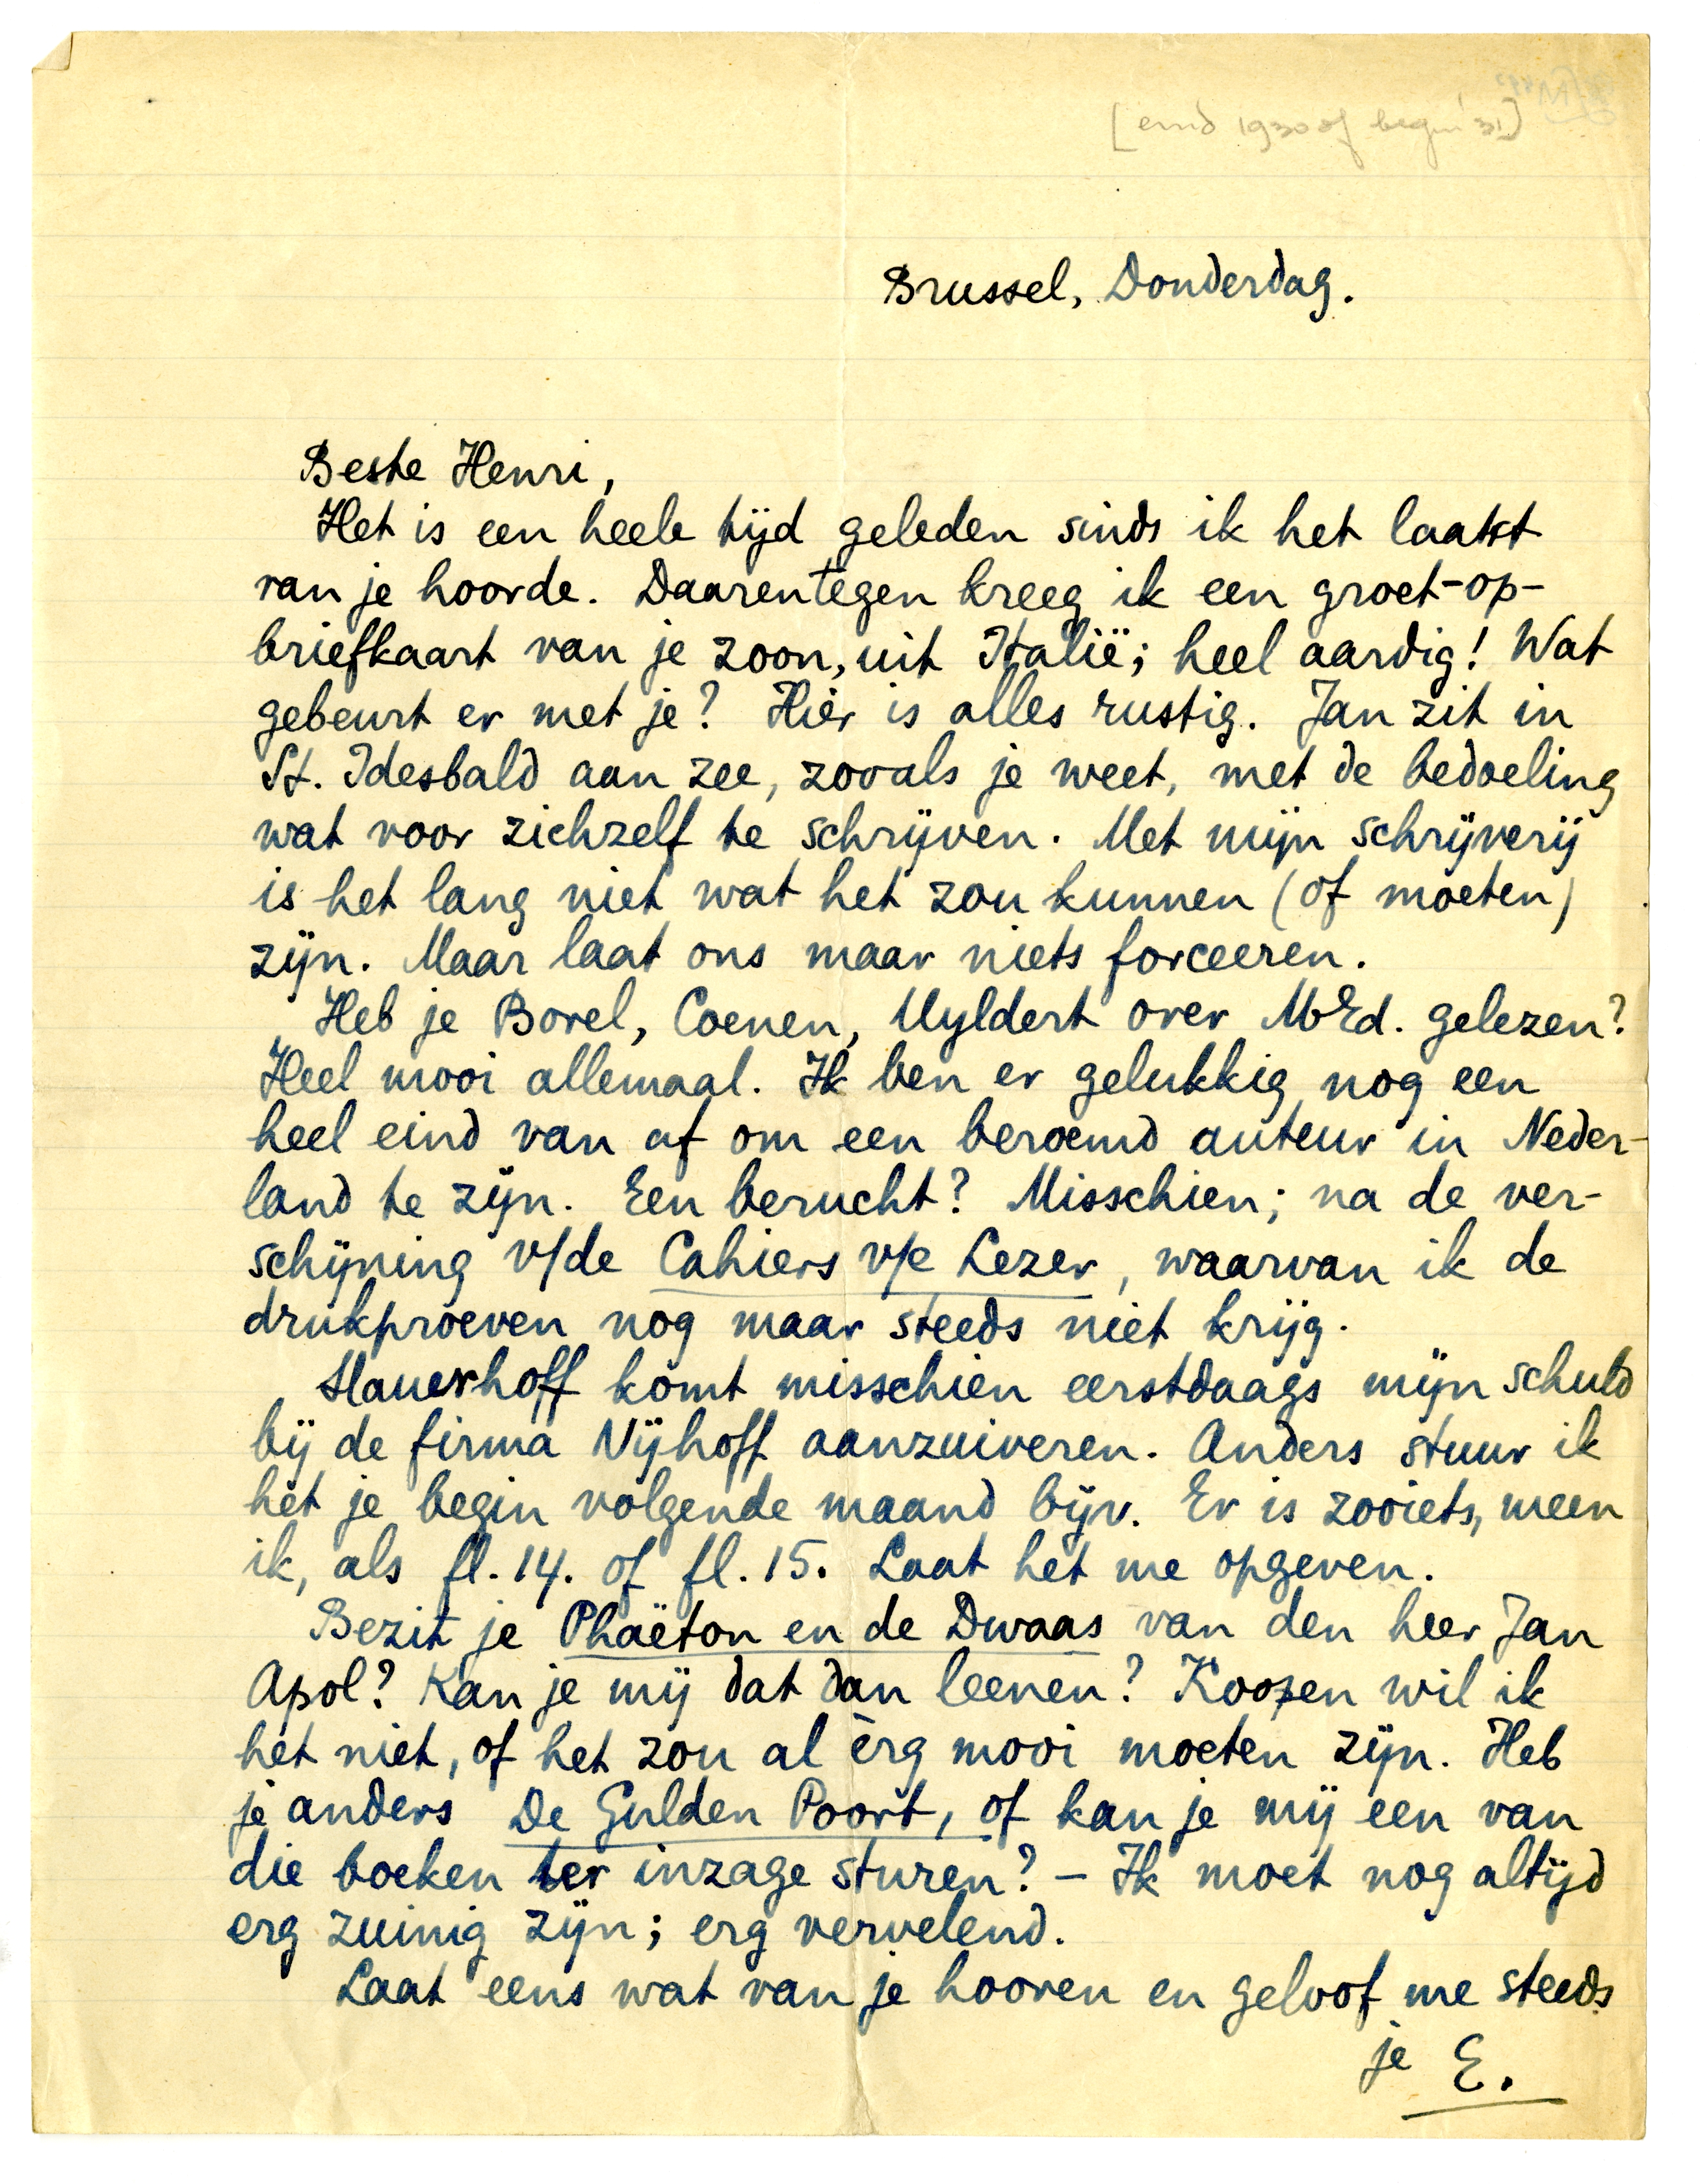 [eind 1930 of begin '31]
Brussel, Donderdag.
Beste Henri,
Het is een heele tijd geleden sinds ik het laatst
van je hoorde. Daarentegen kreeg ik een groet-op-
briefkaart van je zoon, uit Italië; heel aardig! Wat
gebeurt er met je? Hier is alles rustig. Jan zit in
St. Idesbald aan zee, zooals je weet, met de bedoeling
wat voor zichzelf te schrijven. Met mijn schrijverij
is het lang niet wat het zou kunnen (of moeten)
zijn. Maar laat ons maar niets forceeren.
Heb je Borel, Coenen, Uyldert over MbEd. gelezen?
Heel mooi allemaal. Ik ben er gelukkig nog een
heel eind van af om een beroemd auteur in Neder-
land te zijn. Een berucht? Misschien; na de ver-
schijning v/de Cahiers v/e Lezer, waarvan ik de
drukproeven nog maar steeds niet krijg.
Slauerhoff komt misschien eerstdaags mijn schuld
bij de firma Nijhoff aanzuiveren. Anders stuur ik
het je begin volgende maand bijv. Er is zooiets, meen
ik, als fl. 14. of fl. 15. Laat het me opgeven.
Bezit je Phaëton en de Dwaas van den heer Jan
Apol? Kan je mij dat dan leenen? Koopen wil ik
het niet, of het zou al èrg mooi moeten zijn. Heb
je anders De Gulden Poort, of kan je mij een van
die boeken ter inzage sturen? – Ik moet nog altijd
erg zuinig zijn; erg vervelend.
Laat eens wat van je hooren en geloof me steeds
je E.